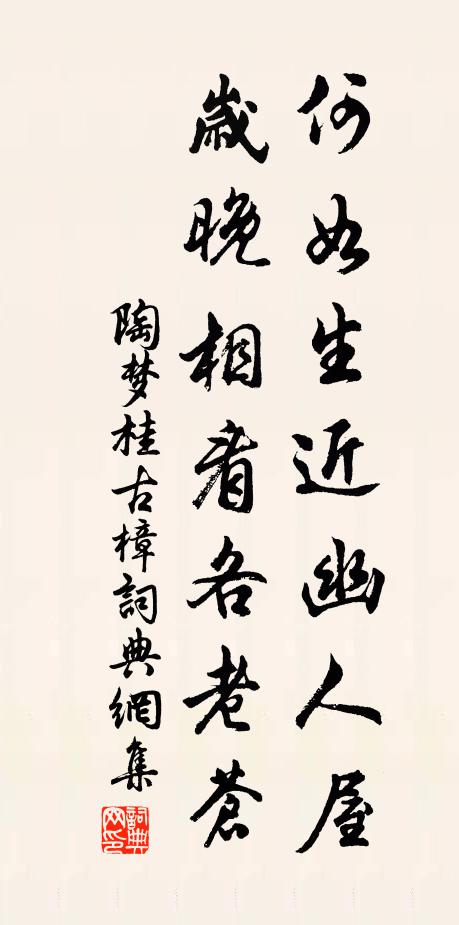 何如生近幽人屋
歲晚相看各老蒼
陶梦桂古樟詞典網集
詞典網印